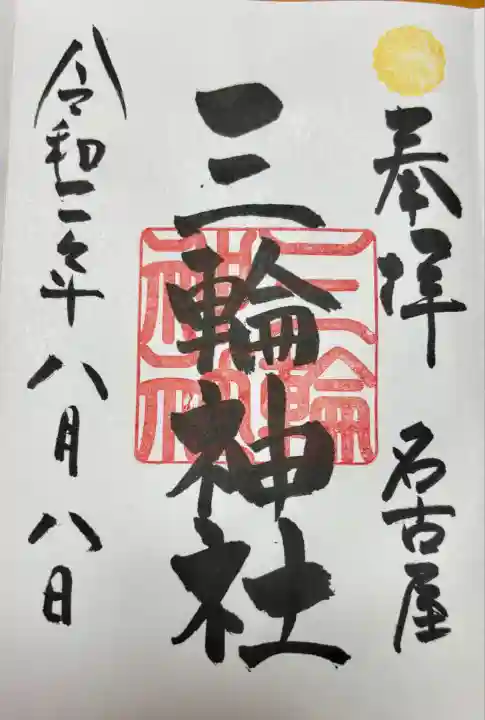 奉拝 名古屋
三輪神社
三輪神社
令和二年八月八日